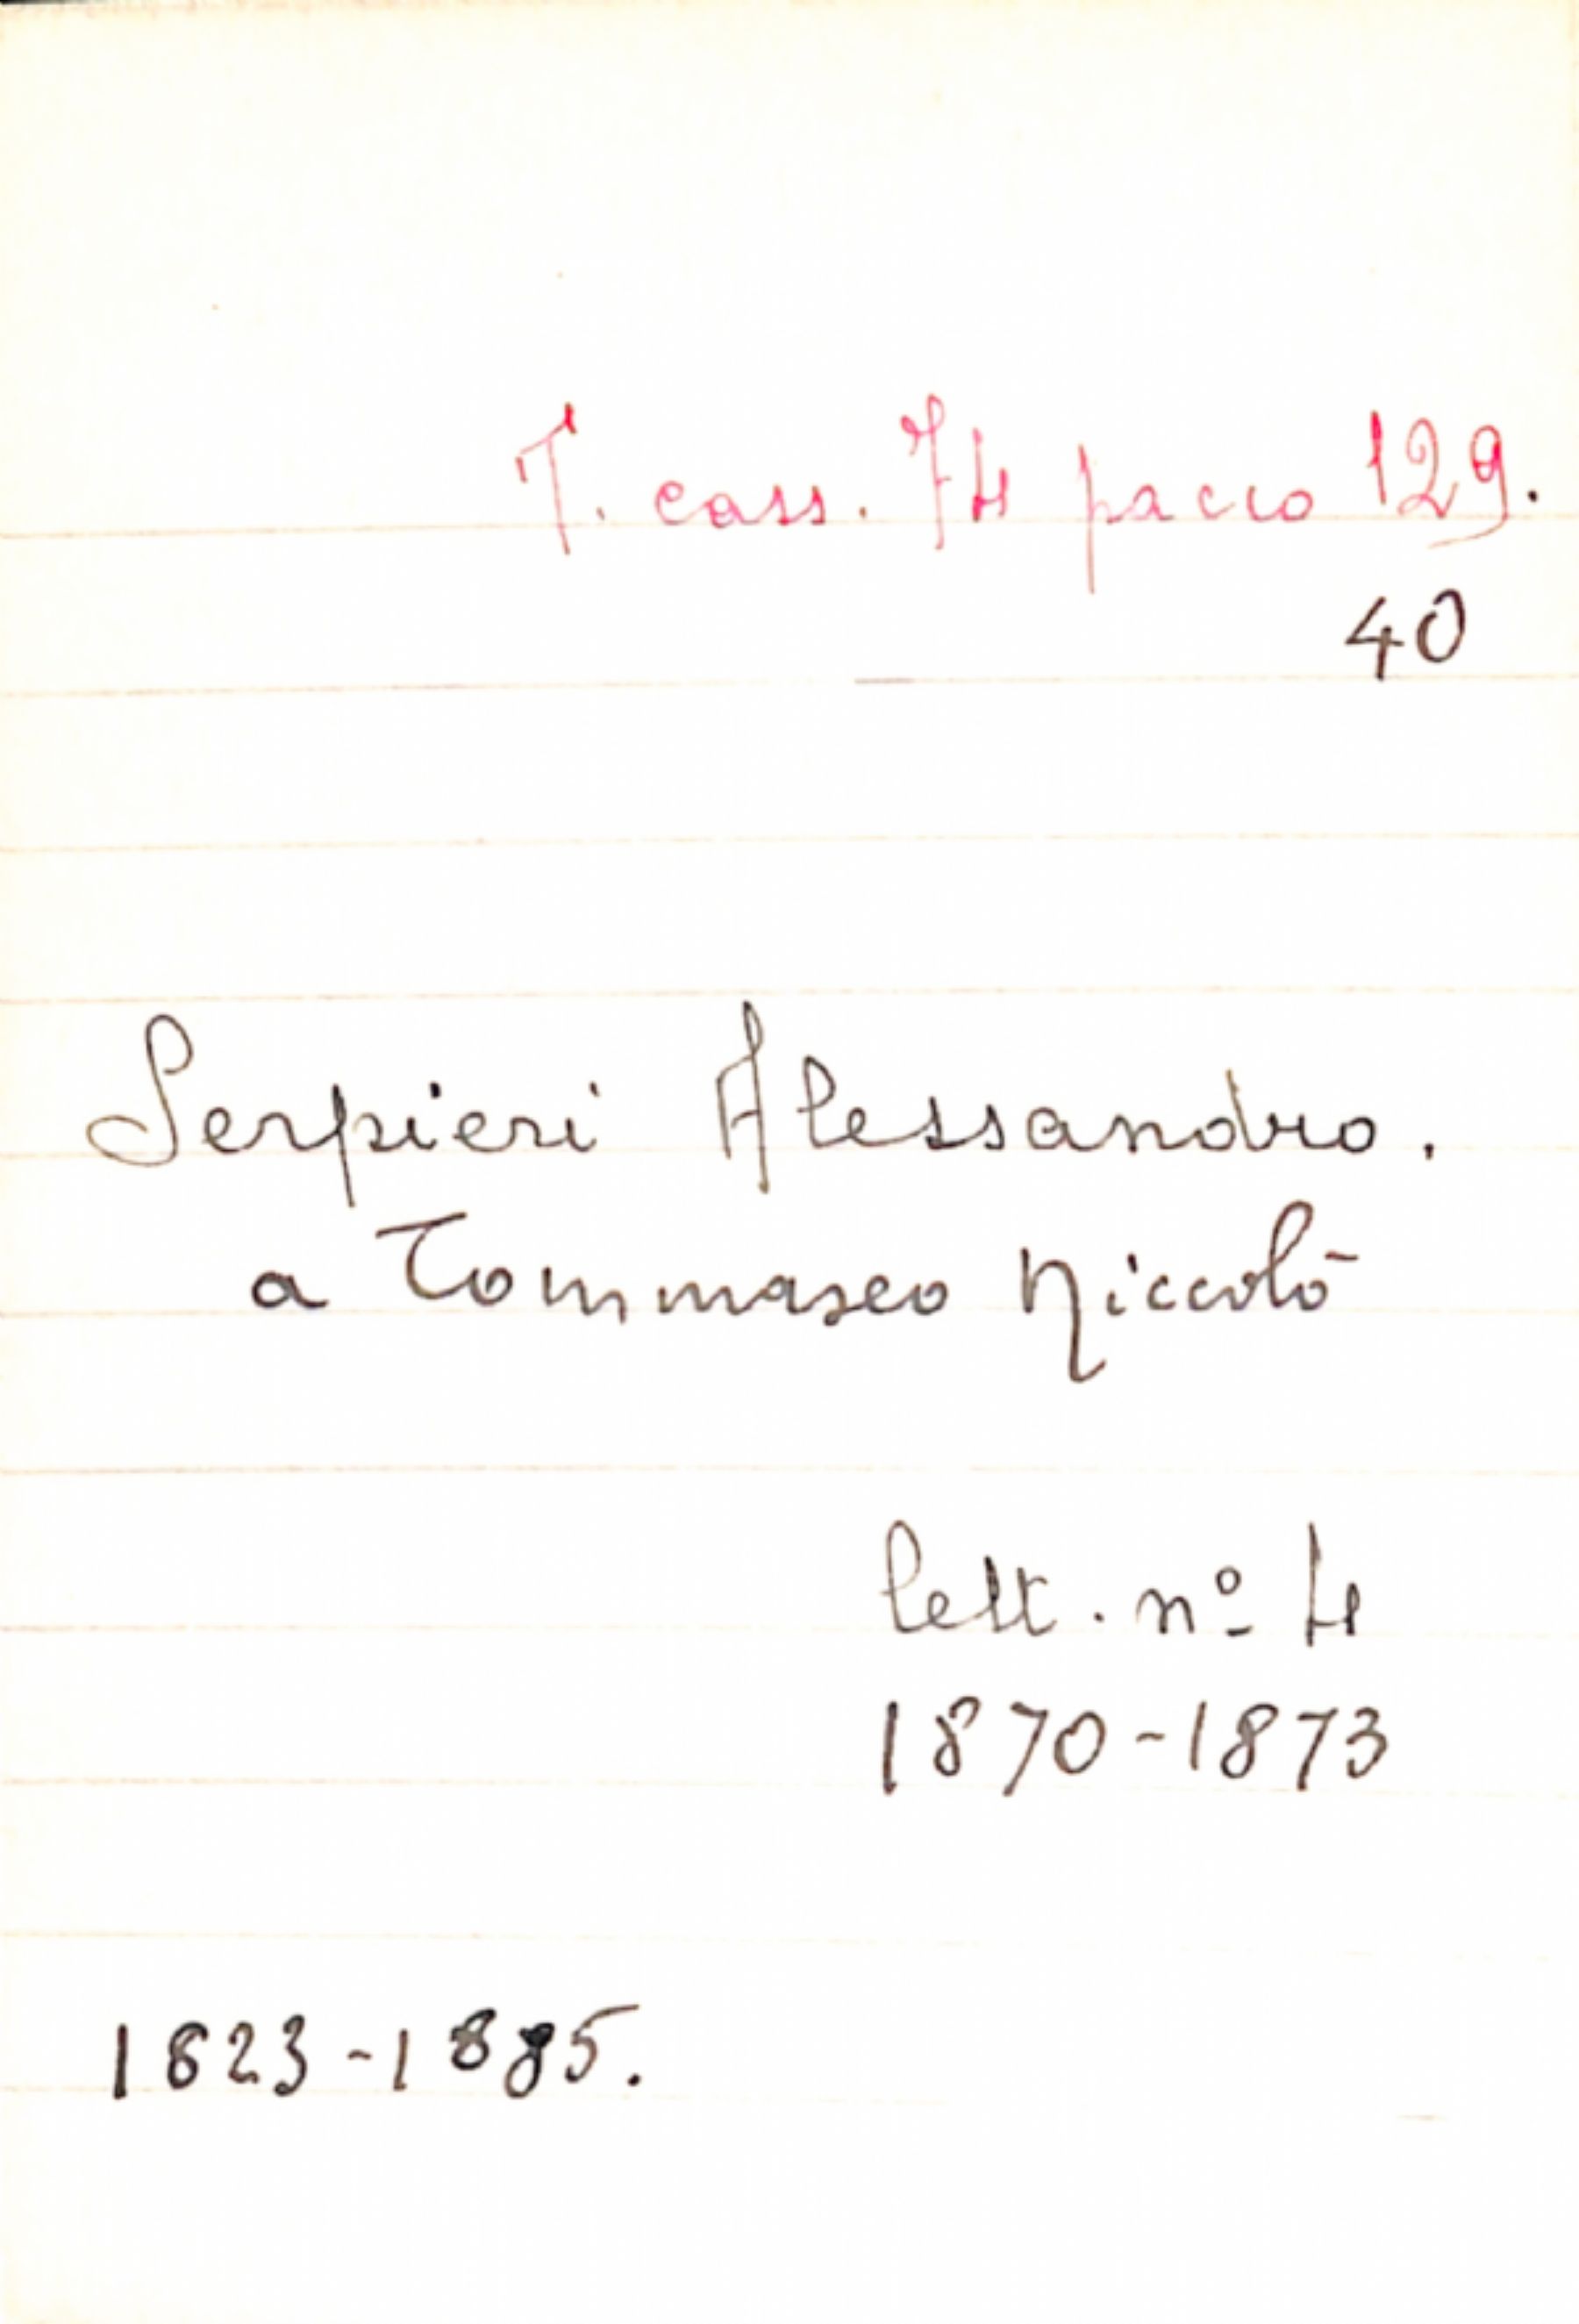 T. cass. 74 pacco 129.
40
Serpieri Alessandro.
a Tommaseo Niccolò
lett. nº 4
1870-1873
1823-1885.